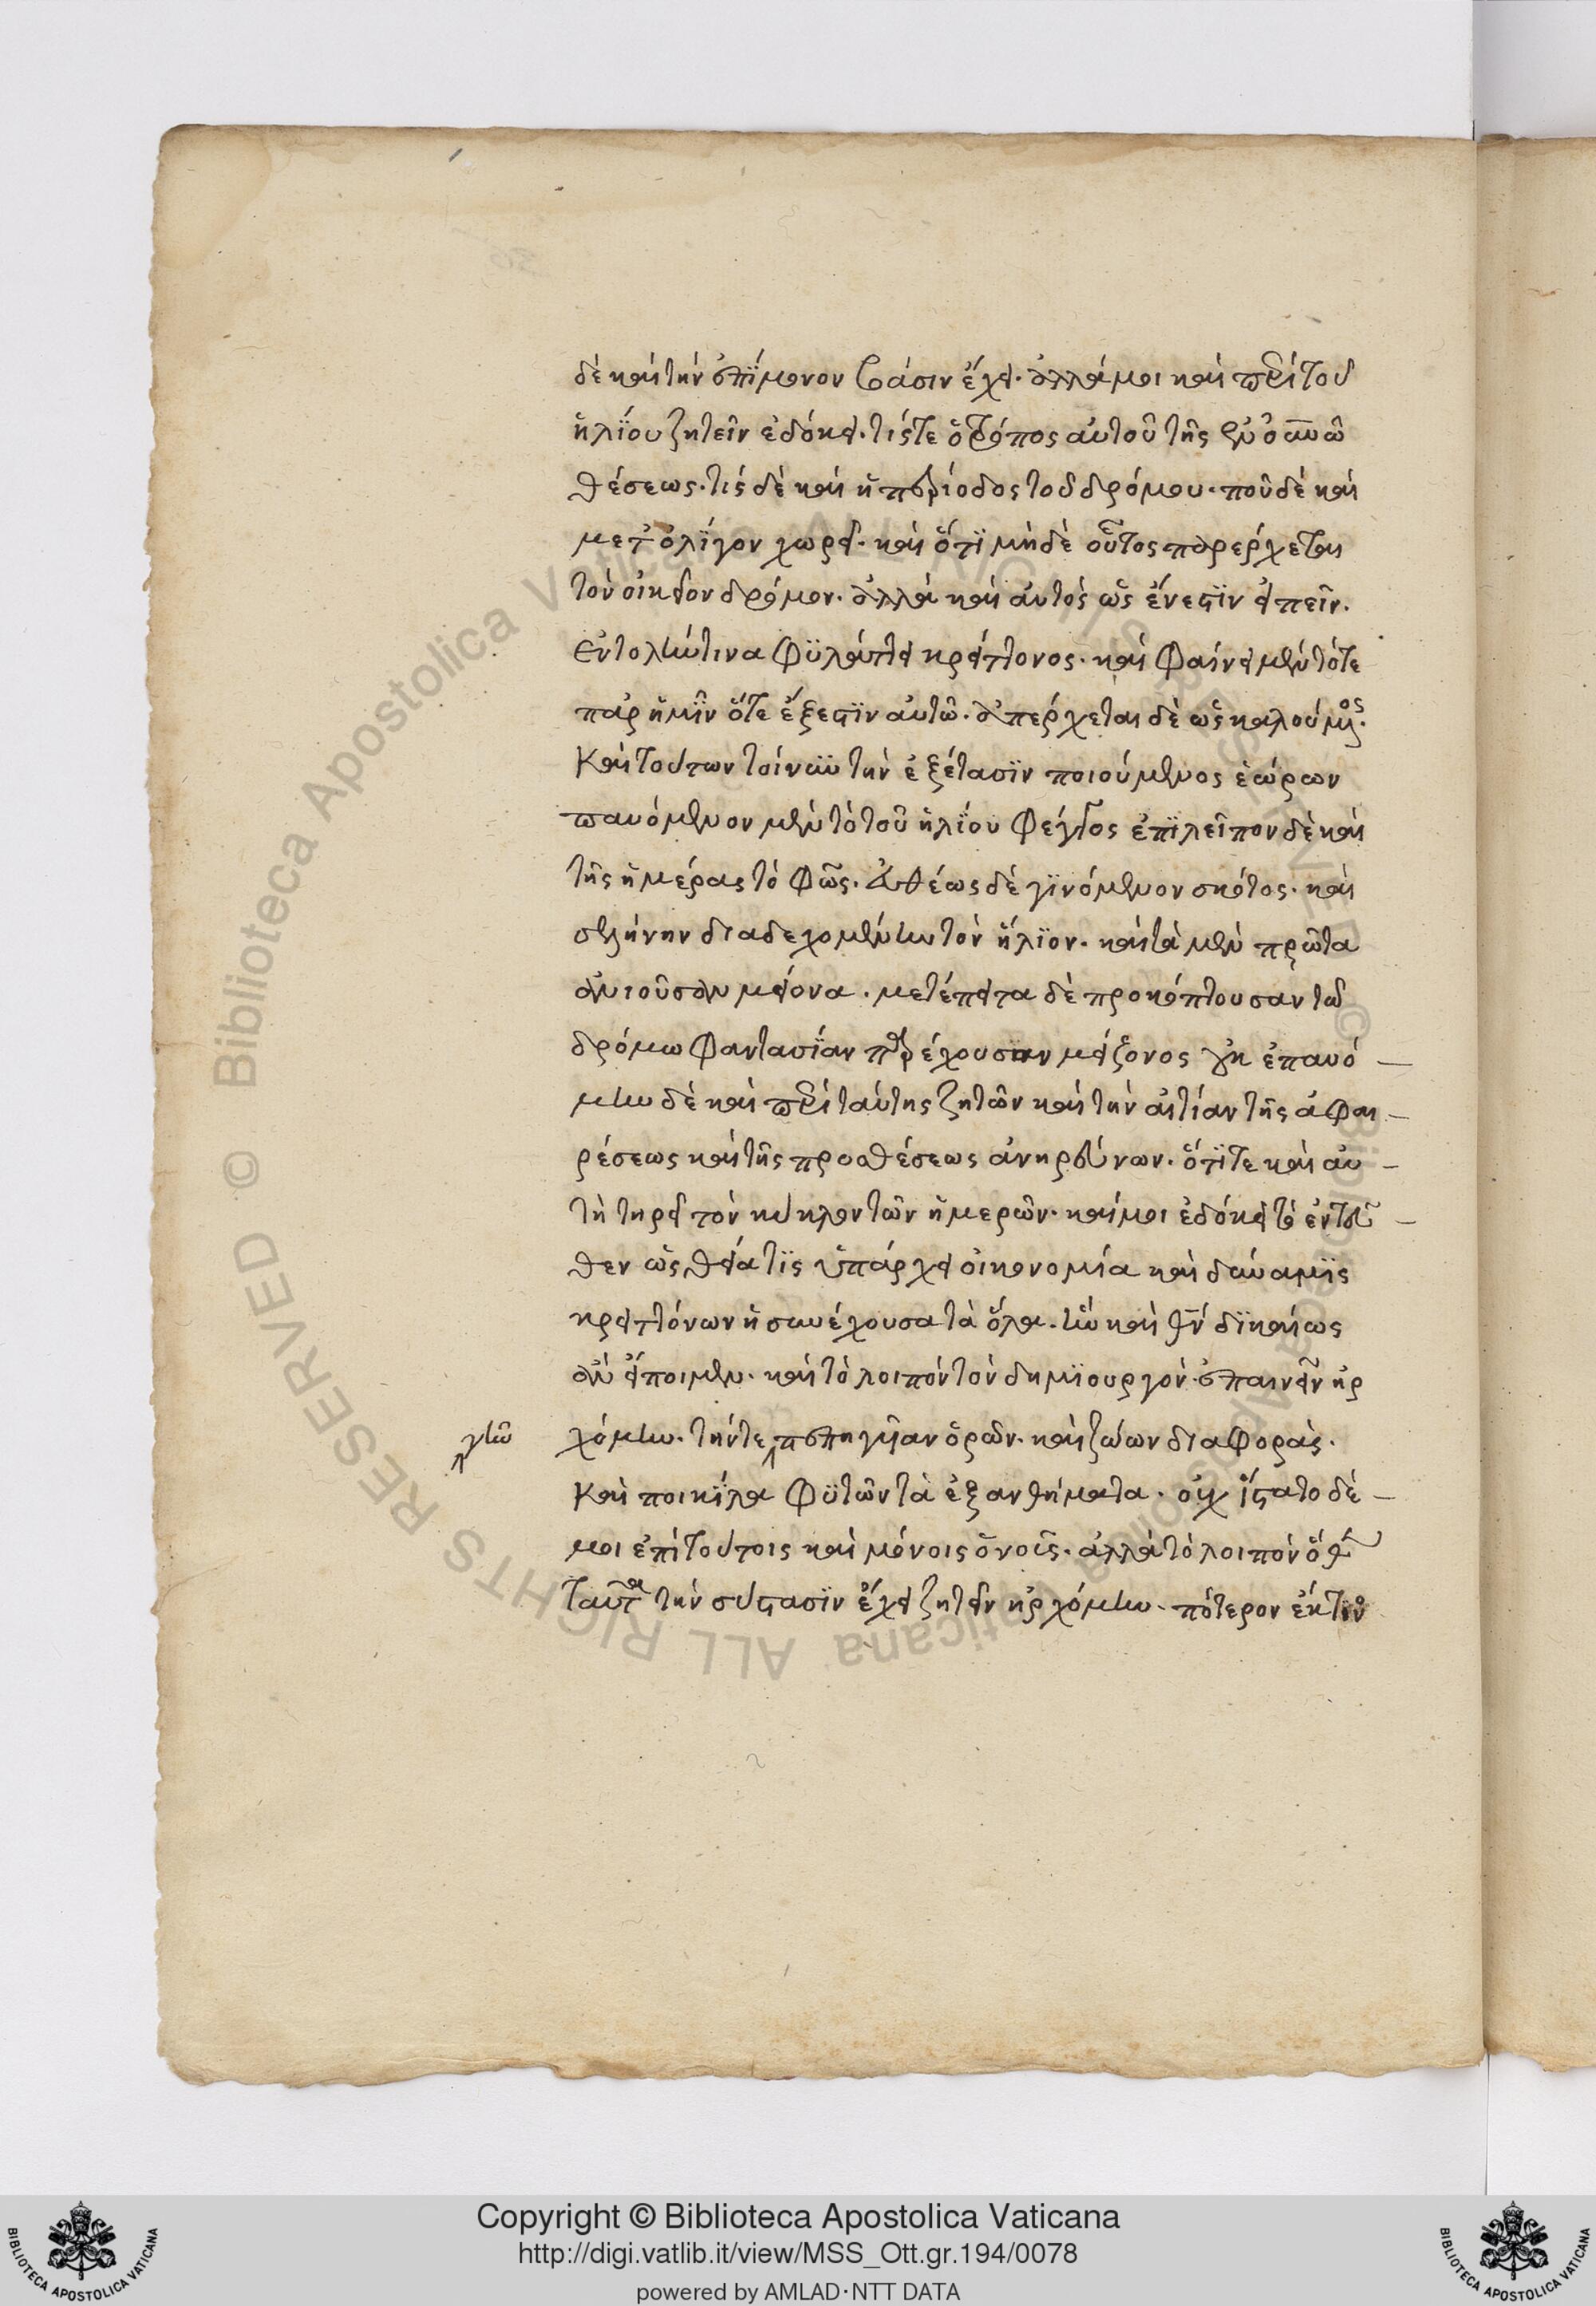 δὲ καὶ τὴν ἐπίμονον βάσιν ἔχει. ἀλλά μοι καὶ περὶ τοῦ
ἡλίου ζητεῖν ἐδόκει. τίς τε ὁ τρόπος αὐτοῦ τῆς ἐν οὐρανῷ
θέσεως. τίς δὲ καὶ ἡ περίοδος τοῦ δρόμου. ποῦ δὲ καὶ
μετ' ὀλίγον χωρεῖ. καὶ ὅτι μὴ δὲ οὗτος παρέρχεται
τὸν οἰκεῖον δρόμον. ἀλλὰ καὶ αὐτὸς ὡς ἔνεστιν εἰπεῖν.
ἐντολήν τινα φυλάττει κρείττονος. καὶ φαίνει μὲν τότε
παρ ἡμῖν ὅτε ἔξεστιν αὐτῷ. ἀπέρχεται δὲ ὡς καλούμενος.
Καὶ τούτων τοίνυν τὴν ἐξέτασιν ποιούμενος ἑώρων
παυόμενον μὲν τὸ τοῦ ἡλίου φέγγος ἐπιλεῖπον δὲ καὶ
τῆς ἡμέρας τὸ φῶς. εὐθέως δὲ γινόμενον σκότος. καὶ
σελήνην διαδεχομένην τὸν ἥλιον. καὶ τὰ μὲν πρῶτα
ἀνιοῦσαν μείονα. μετέπειτα δὲ προκόπτουσαν τῷ
δρόμῳ φαντασίαν παρέχουσαν μείζονος οὐκ ἐπαυό
μην δὲ καὶ περὶ ταύτης ζητῶν καὶ τὴν αἰτίαν τῆς ἀφαι
ρέσεως καὶ τῆς προσθέσεως ἀνηρεύνων. ὅτι τε καὶ αὐ
τὴ τηρεῖ τὸν κύκλον τῶν ἡμερῶν. καί μοι ἐδόκει τὸ ἐντεῦ
θεν ὡς θεία τις ὑπάρχει οἰκονομία καὶ δύναμις
κρειττόνων ἡ συνέχουσα τὰ ὅλα. ἣν καὶ θν δικαίως
ἂν εἴποιμεν. καὶ τὸ λοιπὸν τὸν δημιουργὸν ἐπαινεῖν ἠρ
χόμην. τήν τε πεπηγυῖαν ὁρῶν. καὶ ζώων διαφοράς.
γῆν
Καὶ ποικίλα φυτῶν τὰ ἐξανθήματα. οὐχ ἵστατο δέ
μοι ἐπὶ τούτοις καὶ μόνοις ὁ νοῦς. ἀλλὰ τὸ λοιπὸν ὅθεν
ταῦτα τὴν σύστασιν ἔχει ζητεῖν ἠρχόμην. πότερον ἔκ τινος
Copyright © Biblioteca Apostolica Vaticana
http://digi.vatlib.it/view/MSS_Ott.gr.194/0078
powered by AMLAD·NTT DATA
BIBLIOTECA APOSTOLICA VATICANA
BIBLIOTECA APOSTOLICA VATICANA